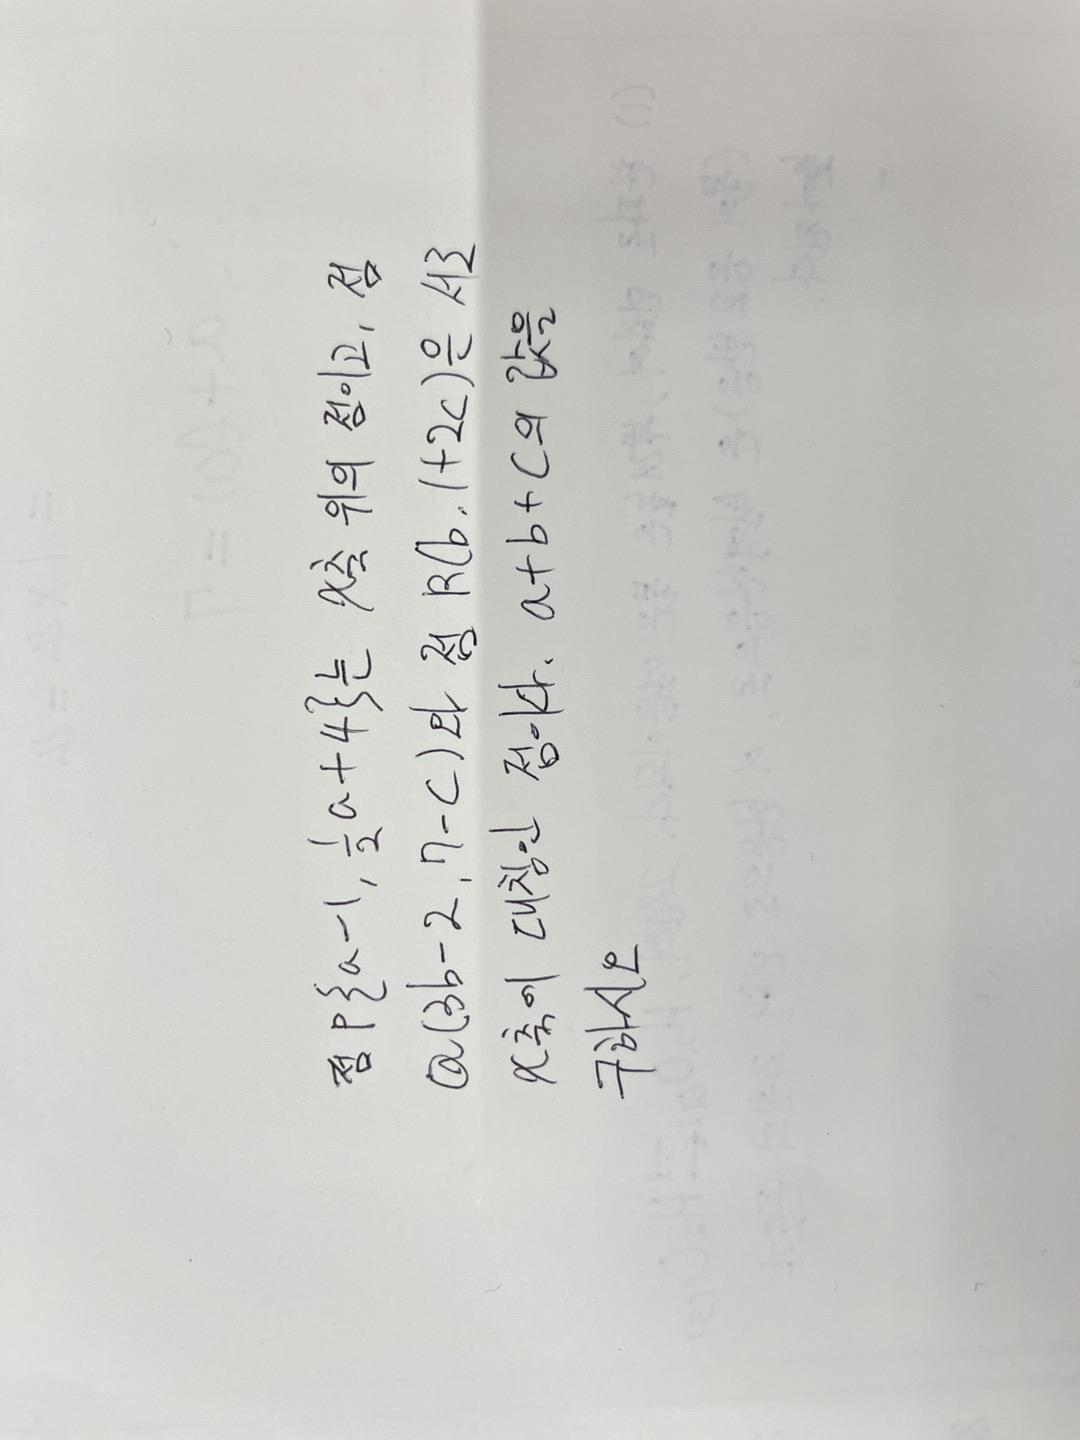 점 P{a-1, 1/2a+4}는 x축 위의 점이고, 점
Q(3b-2, 7-c)와 점 R(b, 1+2c)은 서로
x축에 대칭인 점이다. a+b+c의 값을
구하시오